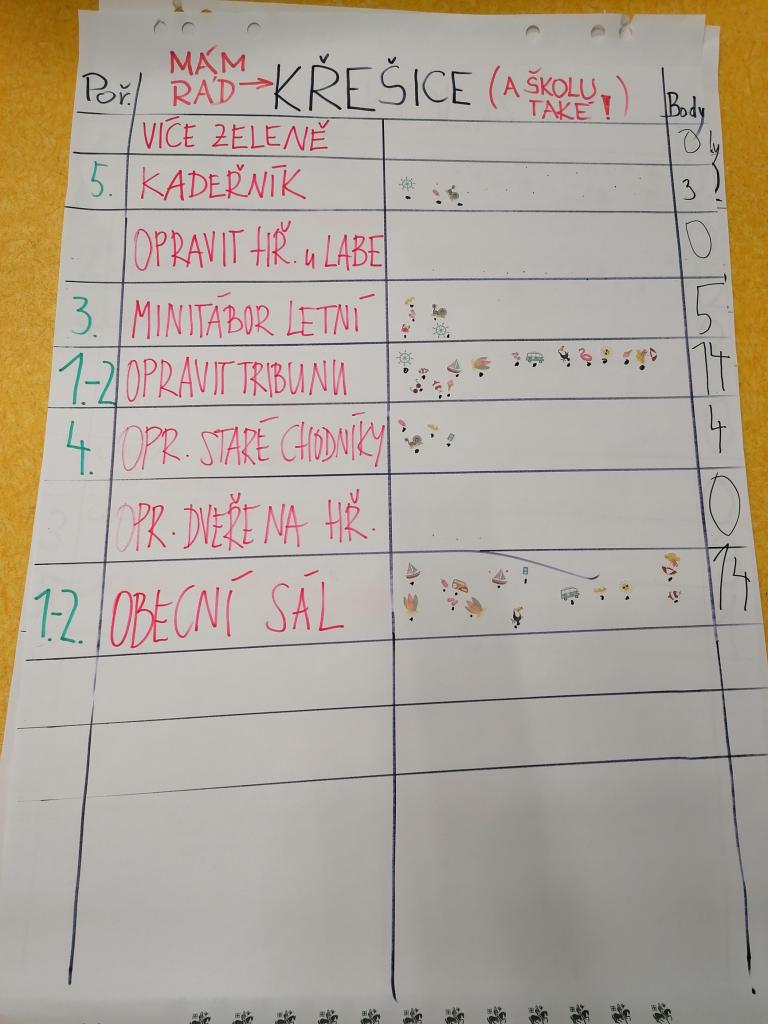 Poř. MÁM RÁD → KŘEŠICE (A ŠKOLU TAKÉ!) Body
VÍCE ZELENĚ 0
5. KADEŘNÍK 3
OPRAVIT HŘ. u LABE 0
3. MINITÁBOR LETNÍ 5
1.-2 OPRAVIT TRIBUNU 14
4. OPR. STARÉ CHODNÍKY 4
OPR. DVEŘE NA HŘ. 0
1.-2. OBECNÍ SÁL 14